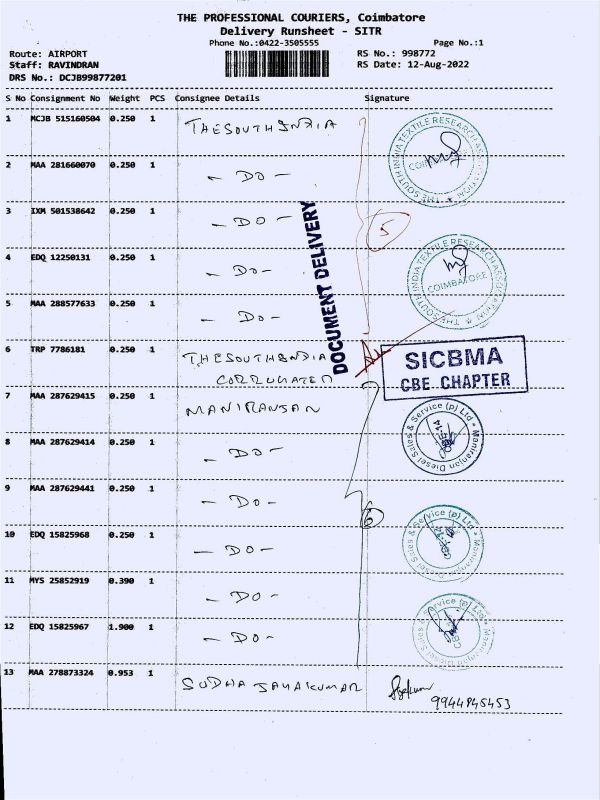 THE PROFESSIONAL COURIERS, Coimbatore
Delivery Runsheet - SITR
Phone No.:0422-3505555
Page No.:1
Route: AIRPORT
RS No.: 998772
Staff: RAVINDRAN
RS Date: 12-Aug-2022
DRS No.: DCJB99877201
S No Consignment No Weight PCS Consignee Details Signature
1 MCJB 515160504 0.250 1 THE SOUTH INDIA
THE SOUTH INDIA TEXTILE RESEARCH ASSOCIATION
COIMBATORE
2 MAA 281660070 0.250 1 - DO -
3 IXM 501538642 0.250 1 - DO -
5
DOCUMENT DELIVERY
4 EDQ 12250131 0.250 1 - DO -
THE SOUTH INDIA TEXTILE RESEARCH ASSOCIATION
COIMBATORE
5 MAA 288577633 0.250 1 - DO -
6 TRP 7786181 0.250 1 THE SOUTH INDIA
CORRUGATED
SICBMA
CBE CHAPTER
7 MAA 287629415 0.250 1 MANIRANJAN
Maniranjan Diesel Sales & Service (p) Ltd
CBE-14
8 MAA 287629414 0.250 1 - DO -
9 MAA 287629441 0.250 1 - DO -
6
Maniranjan Diesel Sales & Service (p) Ltd
10 EDQ 15825968 0.250 1 - DO -
11 MYS 25852919 0.390 1 - DO -
Maniranjan Diesel Sales & Service (p) Ltd
12 EDQ 15825967 1.900 1 - DO -
13 MAA 278873324 0.953 1 SUDHA JAYAKUMAR
9944945453